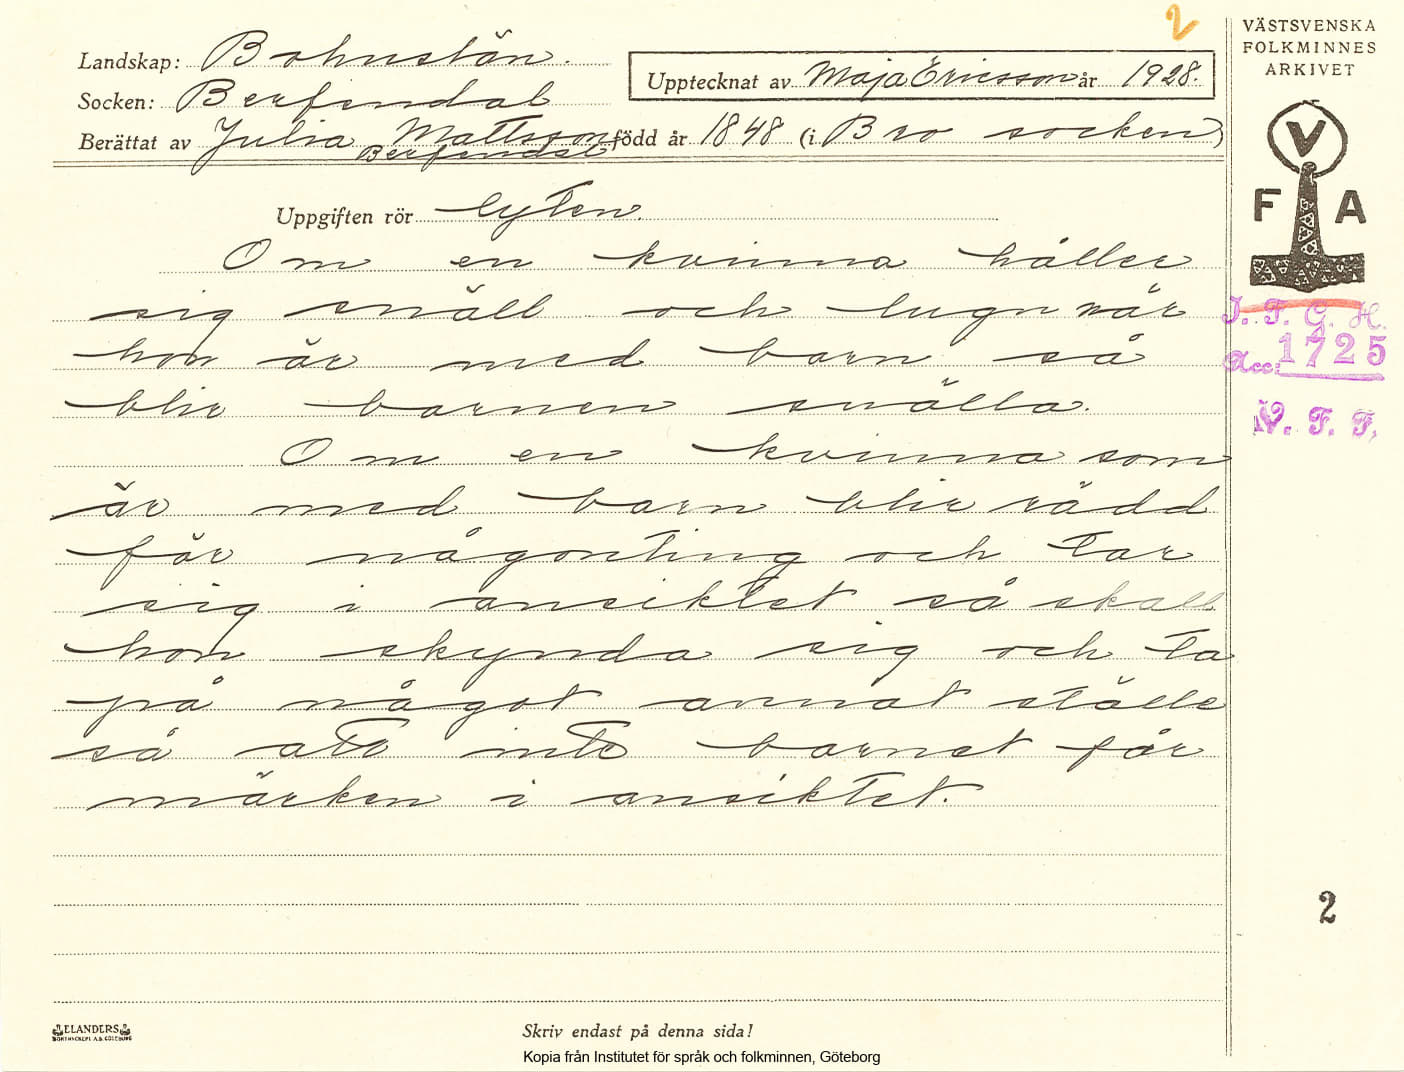 2
VÄSTSVENSKA
FOLKMINNES
ARKIVET
Landskap: Bohuslän.
Socken: Berfendal
Upptecknat av Maja Ericsson år 1928.
Berättat av Julia Mattsson född år 1848 (i Bro socken)
Berfendal
V
F A
Uppgiften rör lyten.
Om en kvinna håller
sig snäll och lugn när
hon är med barn så
blir barnen snälla.
Om en kvinna som
är med barn blir rädd
för någonting och tar
sig i ansiktet så skall
hon skynda sig och ta
på något annat ställe
så att inte barnet får
märken i ansiktet.
I. F. G. H.
Acc: 1725
V. F. F.
2
ELANDERS
BOKTRYCKERI A.B. GÖTEBORG
Skriv endast på denna sida!
Kopia från Institutet för språk och folkminnen, Göteborg